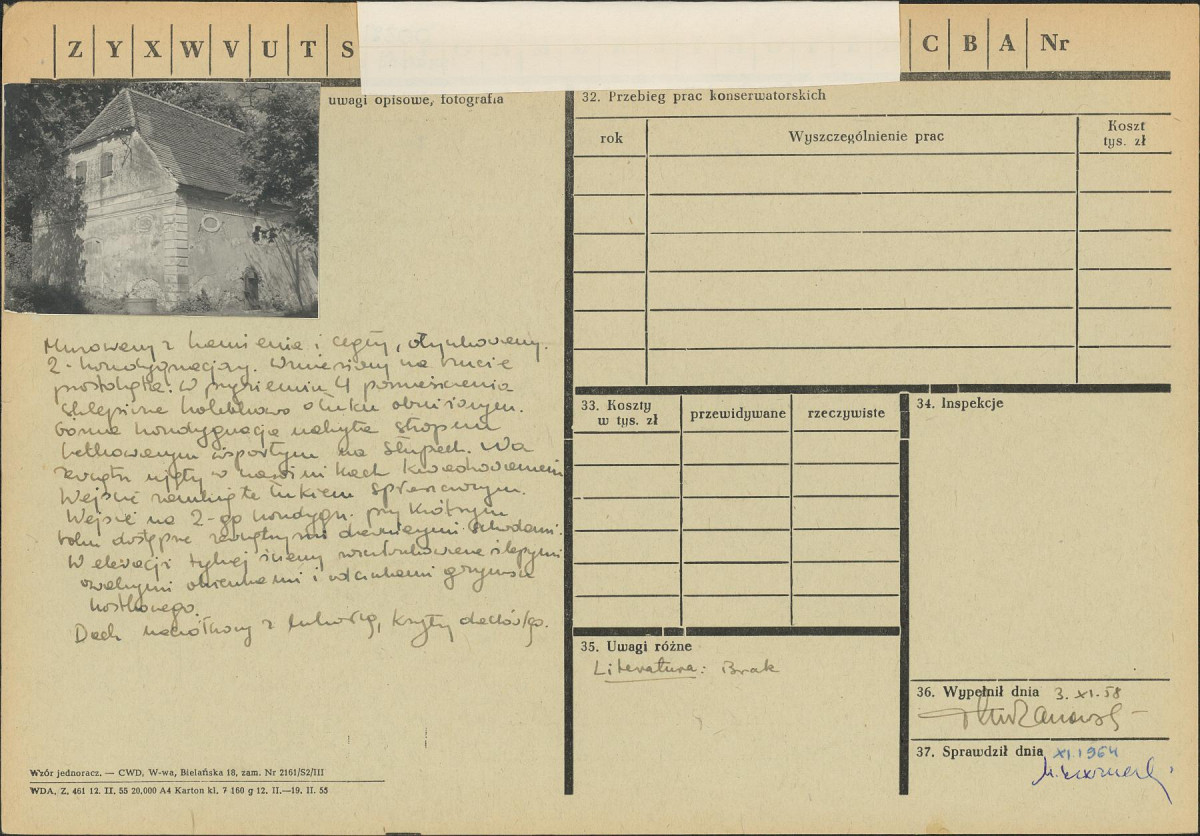 Z Y X W V U T S
C B A Nr
uwagi opisowe, fotografia
Murowany z kamienia i cegły, otynkowany.
2-kondygnacjowy. Wzniesiony na rzucie
prostokąta. W przyziemiu 4 pomieszczenia
sklepione kolebkowo o łuku obniżonym.
Górna kondygnacja nakryta stropem
belkowanym wspartym na słupach. Na
zewnątrz ujęty w narożnikach boniowaniem
Wejście zamknięte łukiem spłaszczonym.
Wejście na 2-go kondygn. przy krótszym
boku dostępne zewnętrznymi drewnianymi schodami.
W elewacji tylnej ściany ślepymi
owalnymi okienkami i odcinkami gzymsu
kostkowego.
Dach naczółkowy z lukarną, kryty dachówką.
Wzór jednoracz. — CWD, W-wa, Bielańska 18, zam. Nr 2161/S2/III
WDA, Z. 461 12. II. 55 20,000 A4 Karton kl. 7 160 g 12. II.—19. II. 55
32. Przebieg prac konserwatorskich
rok Wyszczególnienie prac Koszt tys. zł
33. Koszty w tys. zł przewidywane rzeczywiste
34. Inspekcje
35. Uwagi różne
Literatura: Brak
36. Wypełnił dnia 3. XI. 58
37. Sprawdził dnia XI. 1964